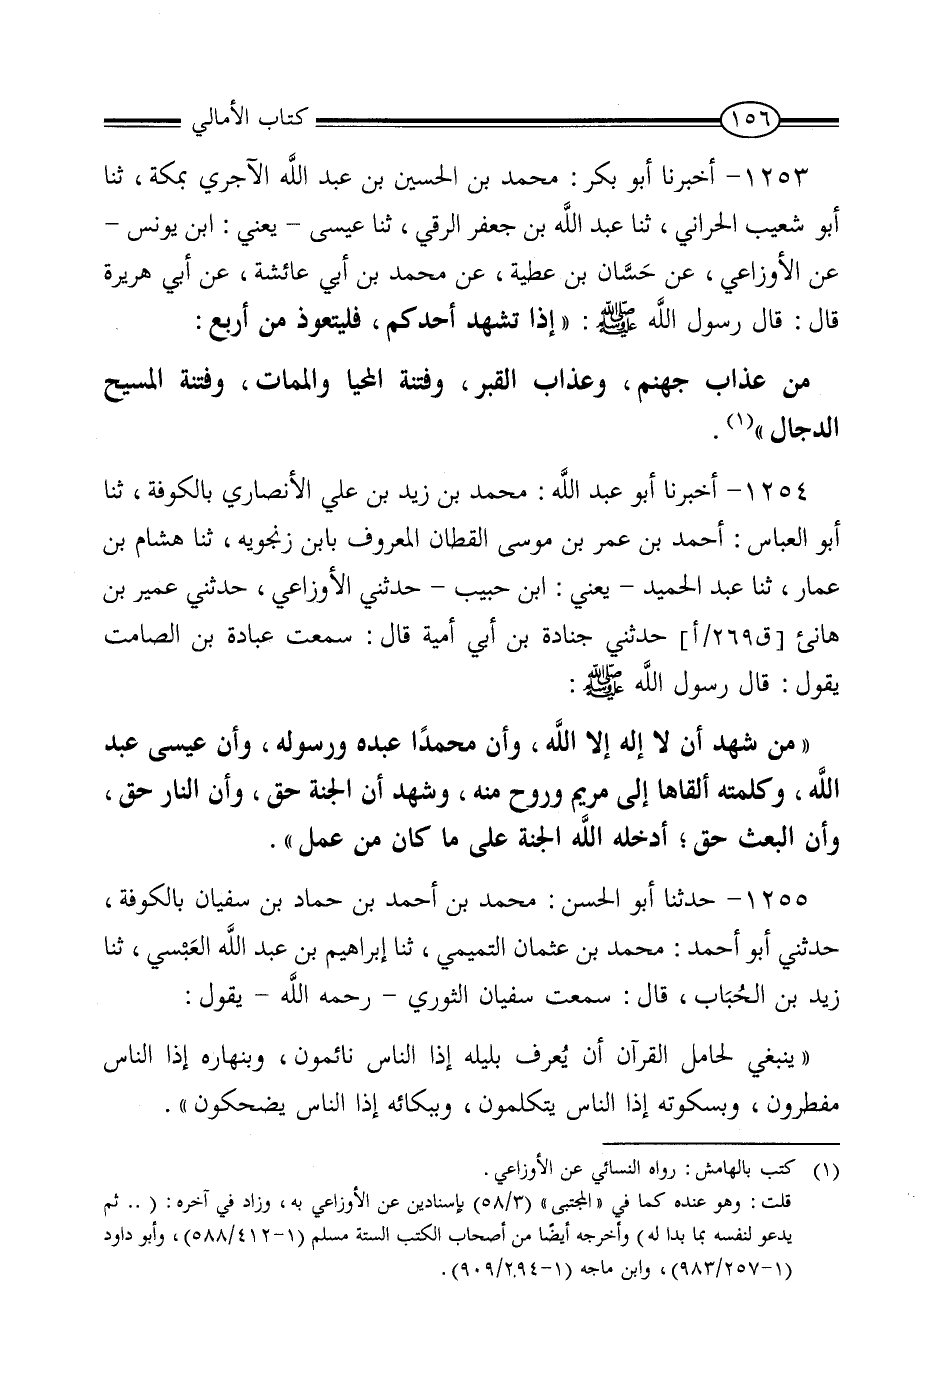 ١٥٦ كتاب الأمالي
١٢٥٣- أخبرنا أبو بكر : محمد بن الحسين بن عبد اللَّه الآجري بمكة ، ثنا
أبو شعيب الحراني ، ثنا عبد اللَّه بن جعفر الرقي ، ثنا عيسى - يعني : ابن يونس -
عن الأوزاعي ، عن حَسَّان بن عطية ، عن محمد بن أبي عائشة ، عن أبي هريرة
قال : قال رسول اللَّه ﷺ : « إذا تشهد أحدكم ، فليتعوذ من أربع :
من عذاب جهنم ، وعذاب القبر ، وفتنة المحيا والممات ، وفتنة المسيح
الدجال »(١) .
١٢٥٤- أخبرنا أبو عبد اللَّه : محمد بن زيد بن علي الأنصاري بالكوفة ، ثنا
أبو العباس : أحمد بن عمر بن موسى القطان المعروف بابن زنجويه ، ثنا هشام بن
عمار ، ثنا عبد الحميد - يعني : ابن حبيب - حدثني الأوزاعي ، حدثني عمير بن
هانئ [ق٢٦٩/أ] حدثني جنادة بن أبي أمية قال : سمعت عبادة بن الصامت
يقول : قال رسول اللَّه ﷺ :
« من شهد أن لا إله إلا اللَّه ، وأن محمدًا عبده ورسوله ، وأن عيسى عبد
اللَّه ، وكلمته ألقاها إلى مريم وروح منه ، وشهد أن الجنة حق ، وأن النار حق ،
وأن البعث حق ؛ أدخله اللَّه الجنة على ما كان من عمل » .
١٢٥٥- حدثنا أبو الحسن : محمد بن أحمد بن حماد بن سفيان بالكوفة ،
حدثني أبو أحمد : محمد بن عثمان التميمي ، ثنا إبراهيم بن عبد اللَّه العَبْسي ، ثنا
زيد بن الحُبَاب ، قال : سمعت سفيان الثوري - رحمه اللَّه - يقول :
« ينبغي لحامل القرآن أن يُعرف بليله إذا الناس نائمون ، وبنهاره إذا الناس
مفطرون ، وبسكوته إذا الناس يتكلمون ، وببكائه إذا الناس يضحكون » .
(١) كتب بالهامش : رواه النسائي عن الأوزاعي .
قلت : وهو عنده كما في « المجتبى » (٥٨/٣) بإسنادين عن الأوزاعي به ، وزاد في آخره : ( .. ثم
يدعو لنفسه بما بدا له ) وأخرجه أيضًا من أصحاب الكتب الستة مسلم (١-٥٨٨/٤١٢) ، وأبو داود
(١-٩٨٣/٢٥٧) ، وابن ماجه (١-٩٠٩/٢٩٤) .